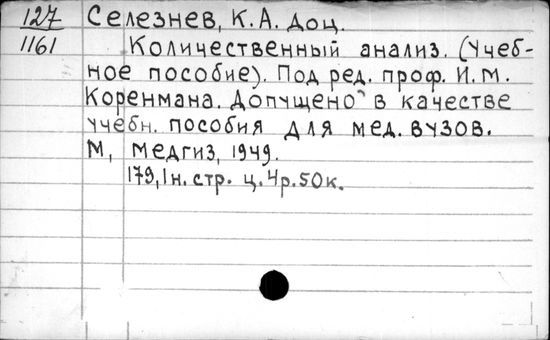 127 Селезнев, К.А. доц.
1161 Количественный анализ. (Учеб-
ное пособие). Под ред. проф. И.М.
Коренмана. Допущено в качестве
учебн. пособия для мед. вузов.
М, Медгиз, 1949.
179, 1 н. стр. ц. 4р. 50к.